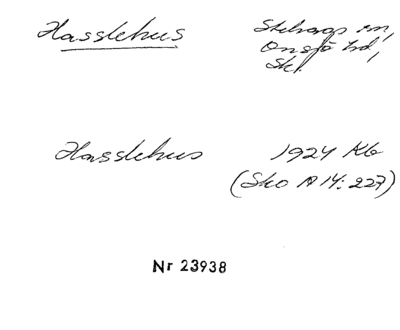 Hasslehus
Stehags sn,
Onsjö hd,
Skl.
Hasslehus
1924 Kb
(Sko A 14: 227)
Nr 23938